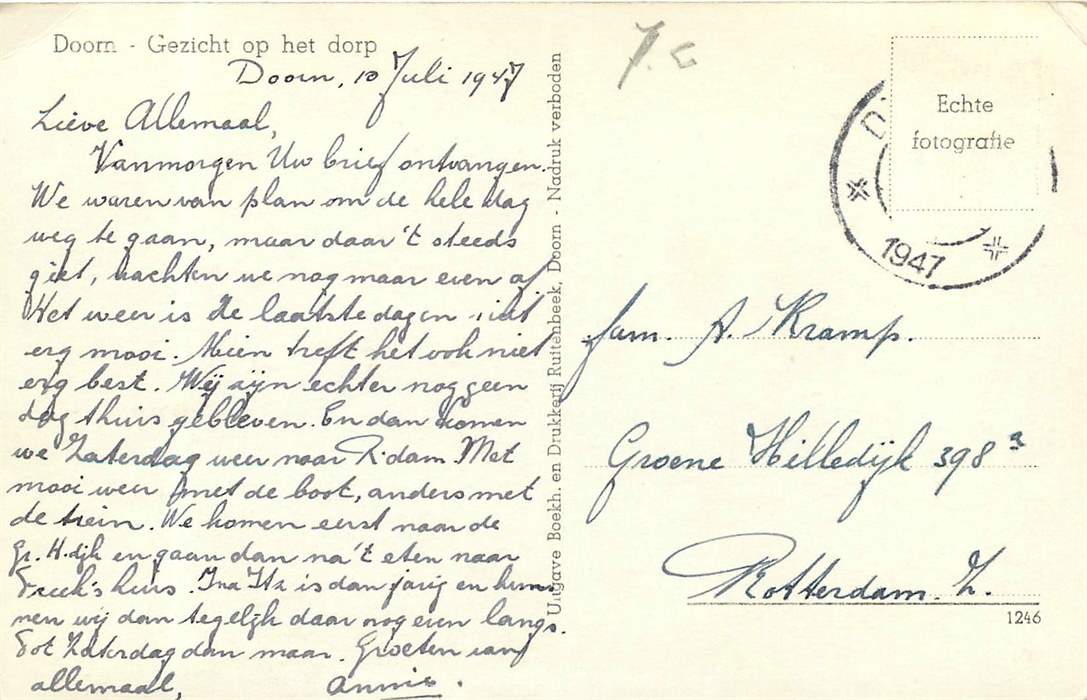 Doorn - Gezicht op het dorp
Doorn, 10 Juli 1947
Lieve Allemaal,
Vanmorgen Uw brief ontvangen.
We waren van plan om de hele dag
weg te gaan, maar daar 't steeds
giet, wachten we nog maar even af
Het weer is de laatste dagen niet
erg mooi. Mien treft het ook niet
erg best. Wij zijn echter nog geen
dag thuis gebleven. En dan komen
we Zaterdag weer naar R.dam. Met
mooi weer met de boot, anders met
de trein. We komen eerst naar de
Gr. H.dijk en gaan dan na 't eten naar
huis. Ina is dan jarig en kun
nen wij dan tegelijk daar nog even langs.
Tot Zaterdag dan maar. Groeten van
allemaal,
Annie.
Uitgave Boekh. en Drukkerij Ruitenbeek, Doorn - Nadruk verboden
Echte
fotografie
D
1947
fam. A. Kramp.
Groene Hilledijk 398 a
Rotterdam. Z.
1246